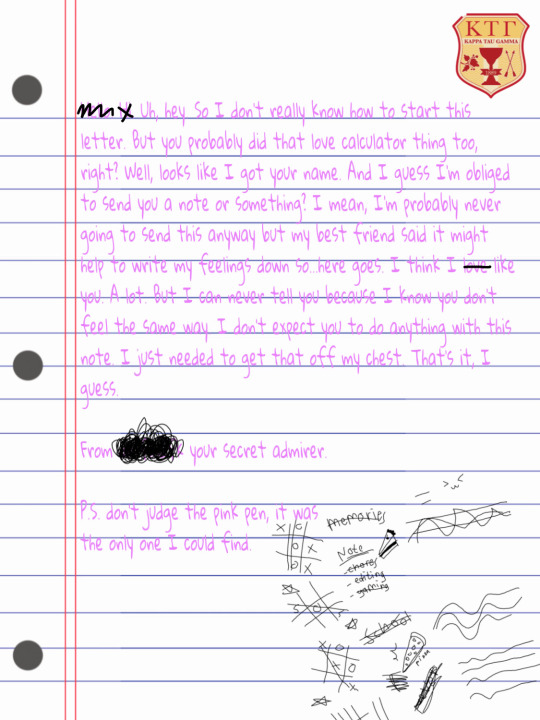 ΚΤΓ
KAPPA TAU GAMMA
Uh, hey. So I don't really know how to start this
letter. But you probably did that love calculator thing too,
right? Well, looks like I got your name. And I guess I'm obliged
to send you a note or something? I mean, I'm probably never
going to send this anyway but my best friend said it might
help to write my feelings down so...here goes. I think I love like
you. A lot. But I can never tell you because I know you don't
feel the same way. I don't expect you to do anything with this
note. I just needed to get that off my chest. That's it, I
guess.
From your secret admirer.
P.S. don't judge the pink pen, it was
the only one I could find.
memories
Note
-chores
- editing
- gaming
school
pizza